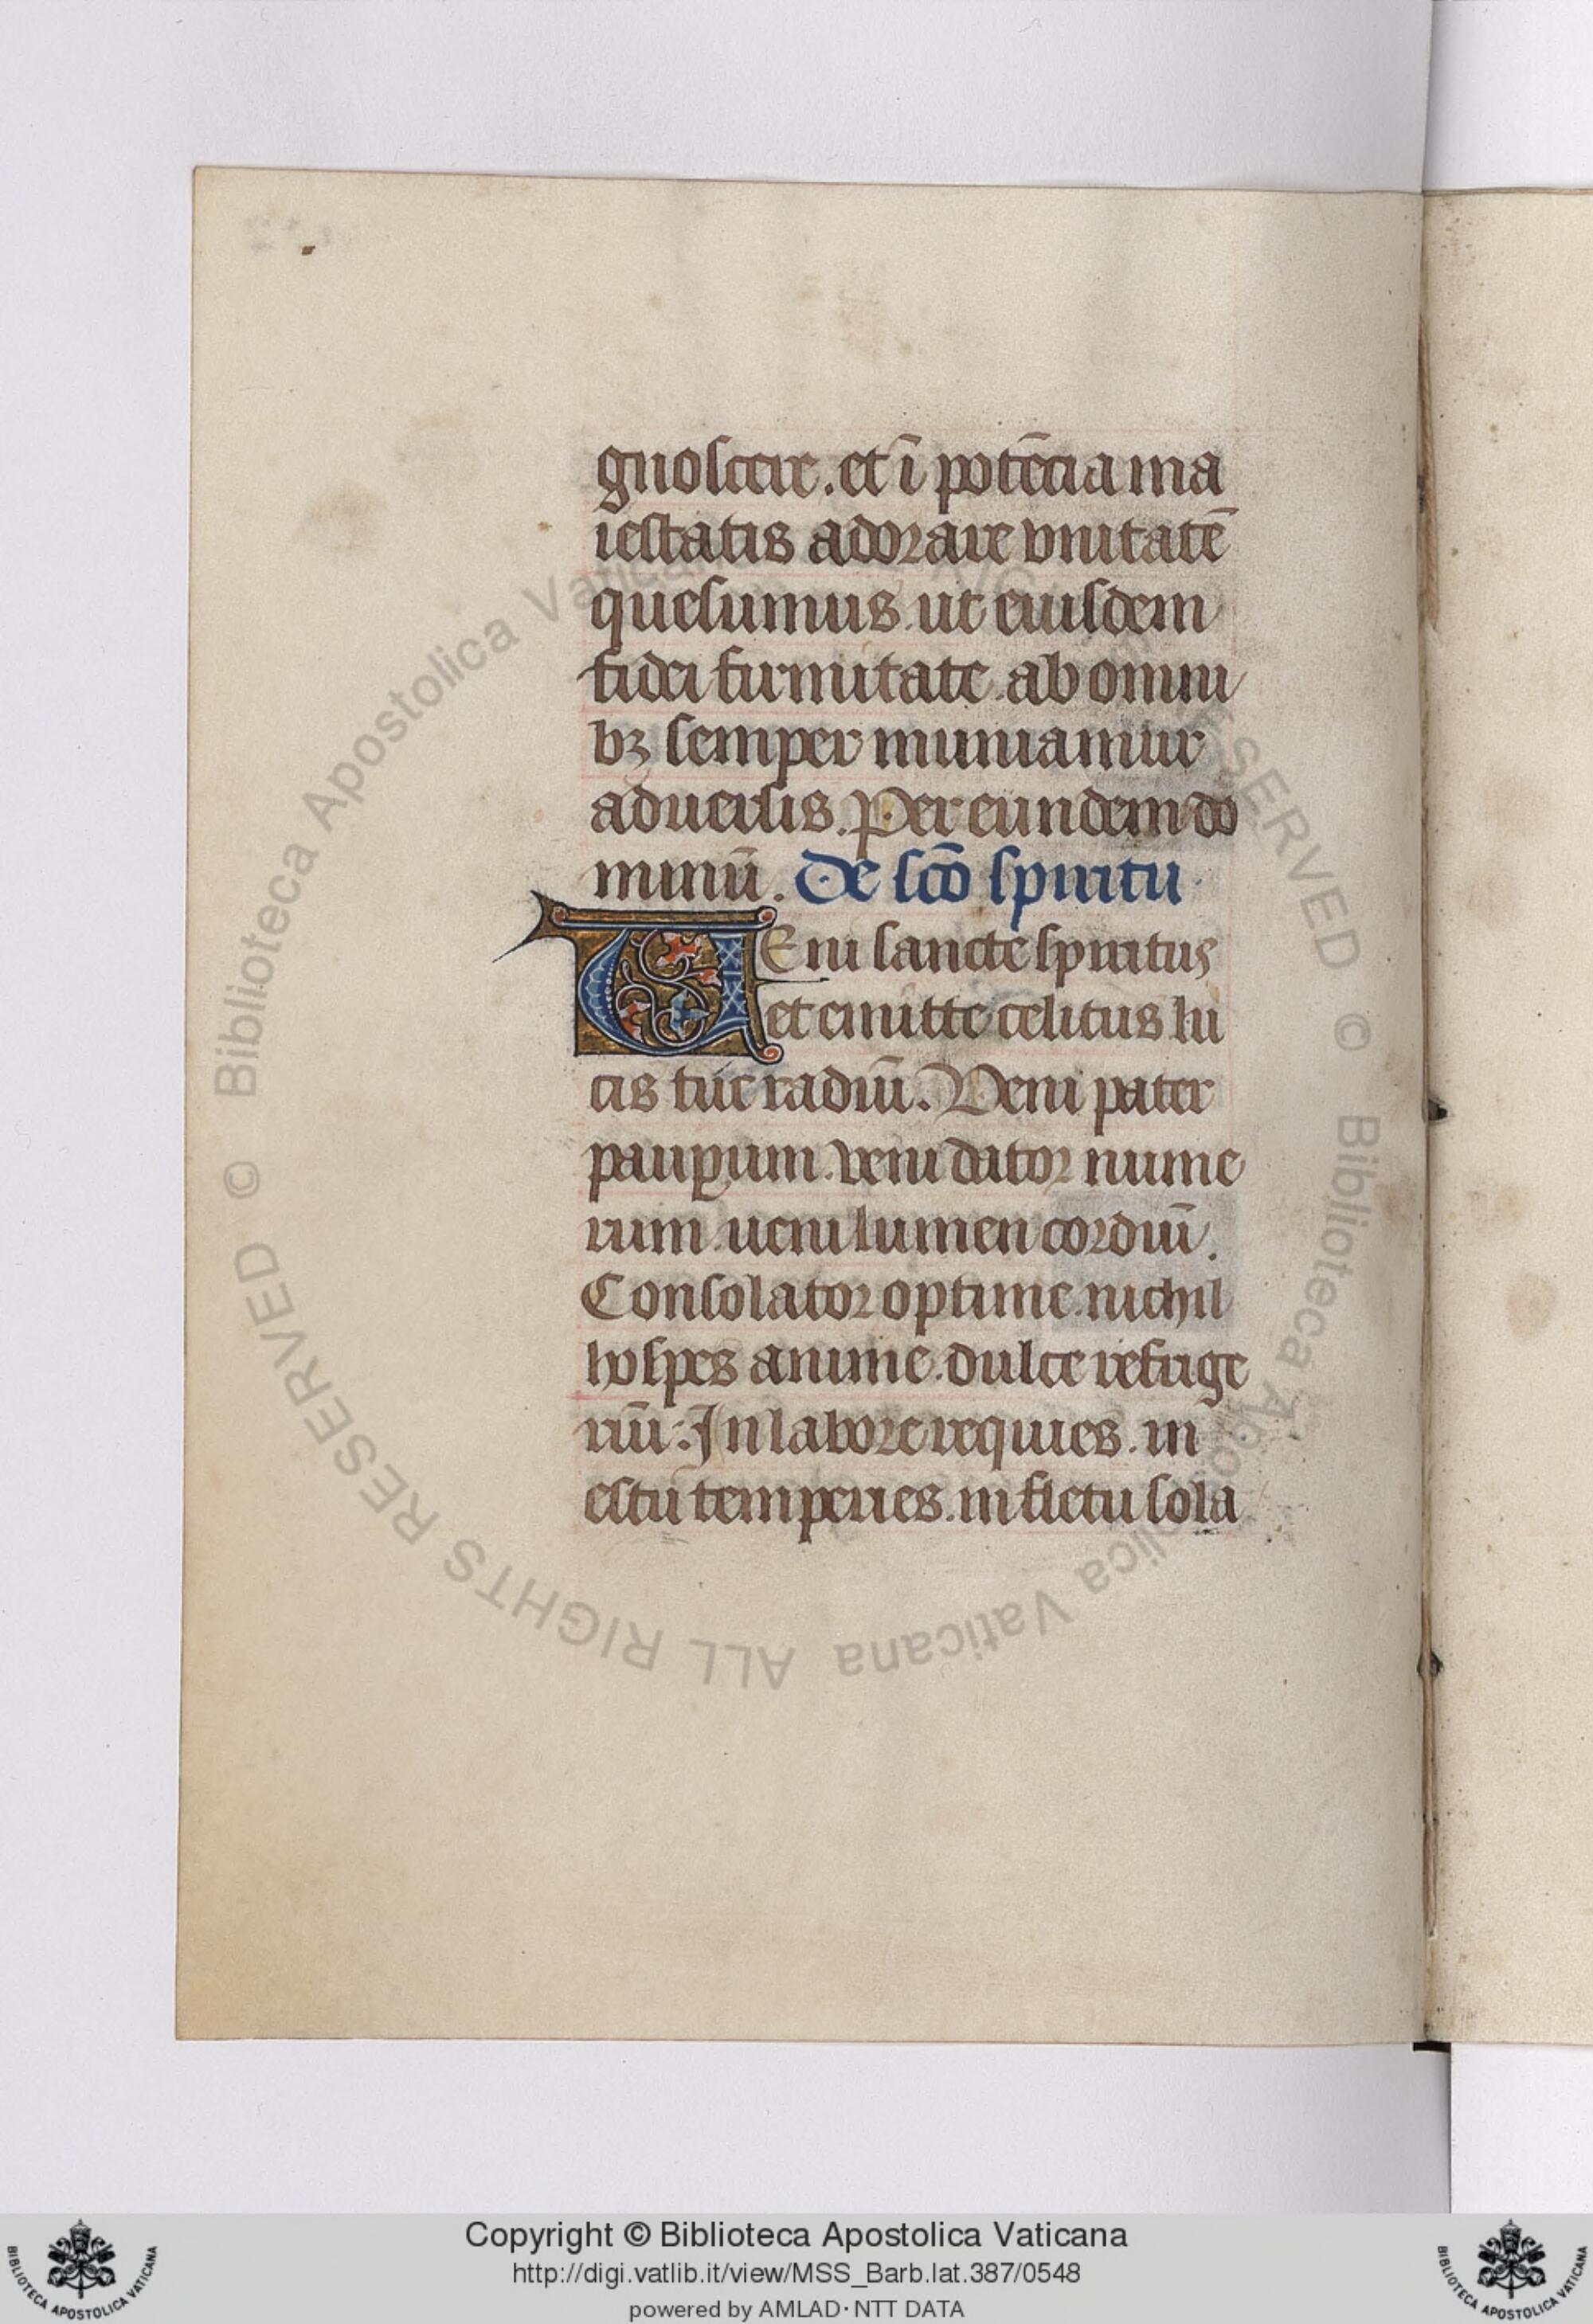 gnoscere. et ī potēcia ma
iestatis adorare vnitatē
quesumus. ut eiusdem
fidei firmitate. ab omni
bꝫ semper muniamur
aduersis. Per eundem do
minū. De sc̄o spiritu
VEni sancte spiritus
et emitte celitus lu
cis tue radiū. Veni pater
pauꝑum. veni dator nume
rum. ueni lumen cordiū.
Consolator optime. nichil
hospes anime. dulce refrige
riū. In labore requies. in
estu temperies. in fletu sola
© Biblioteca Apostolica Vaticana ALL RIGHTS RESERVED © Biblioteca Apostolica Vaticana ALL RIGHTS RESERVED
Copyright © Biblioteca Apostolica Vaticana
http://digi.vatlib.it/view/MSS_Barb.lat.387/0548
powered by AMLAD·NTT DATA
BIBLIOTECA APOSTOLICA VATICANA
BIBLIOTECA APOSTOLICA VATICANA